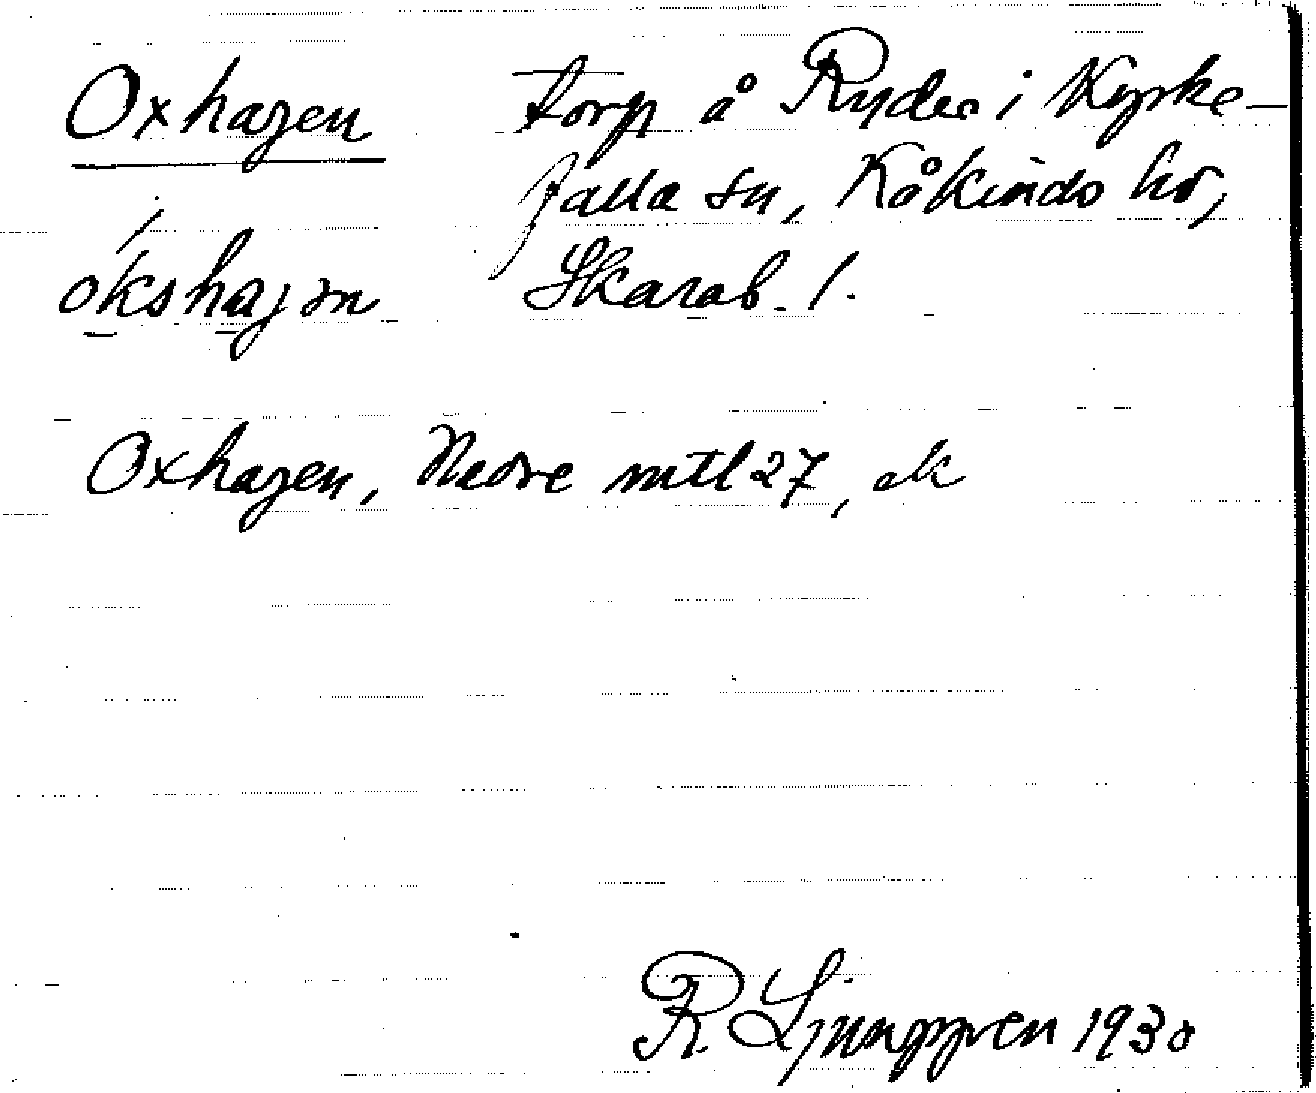 Oxhagen torp å Ryder i Kyrke-
falla sn, Kåkinds hd,
okshagən Skarab. l.
Oxhagen, Nedre mtl 27, ek
R. Ljunggren 1930